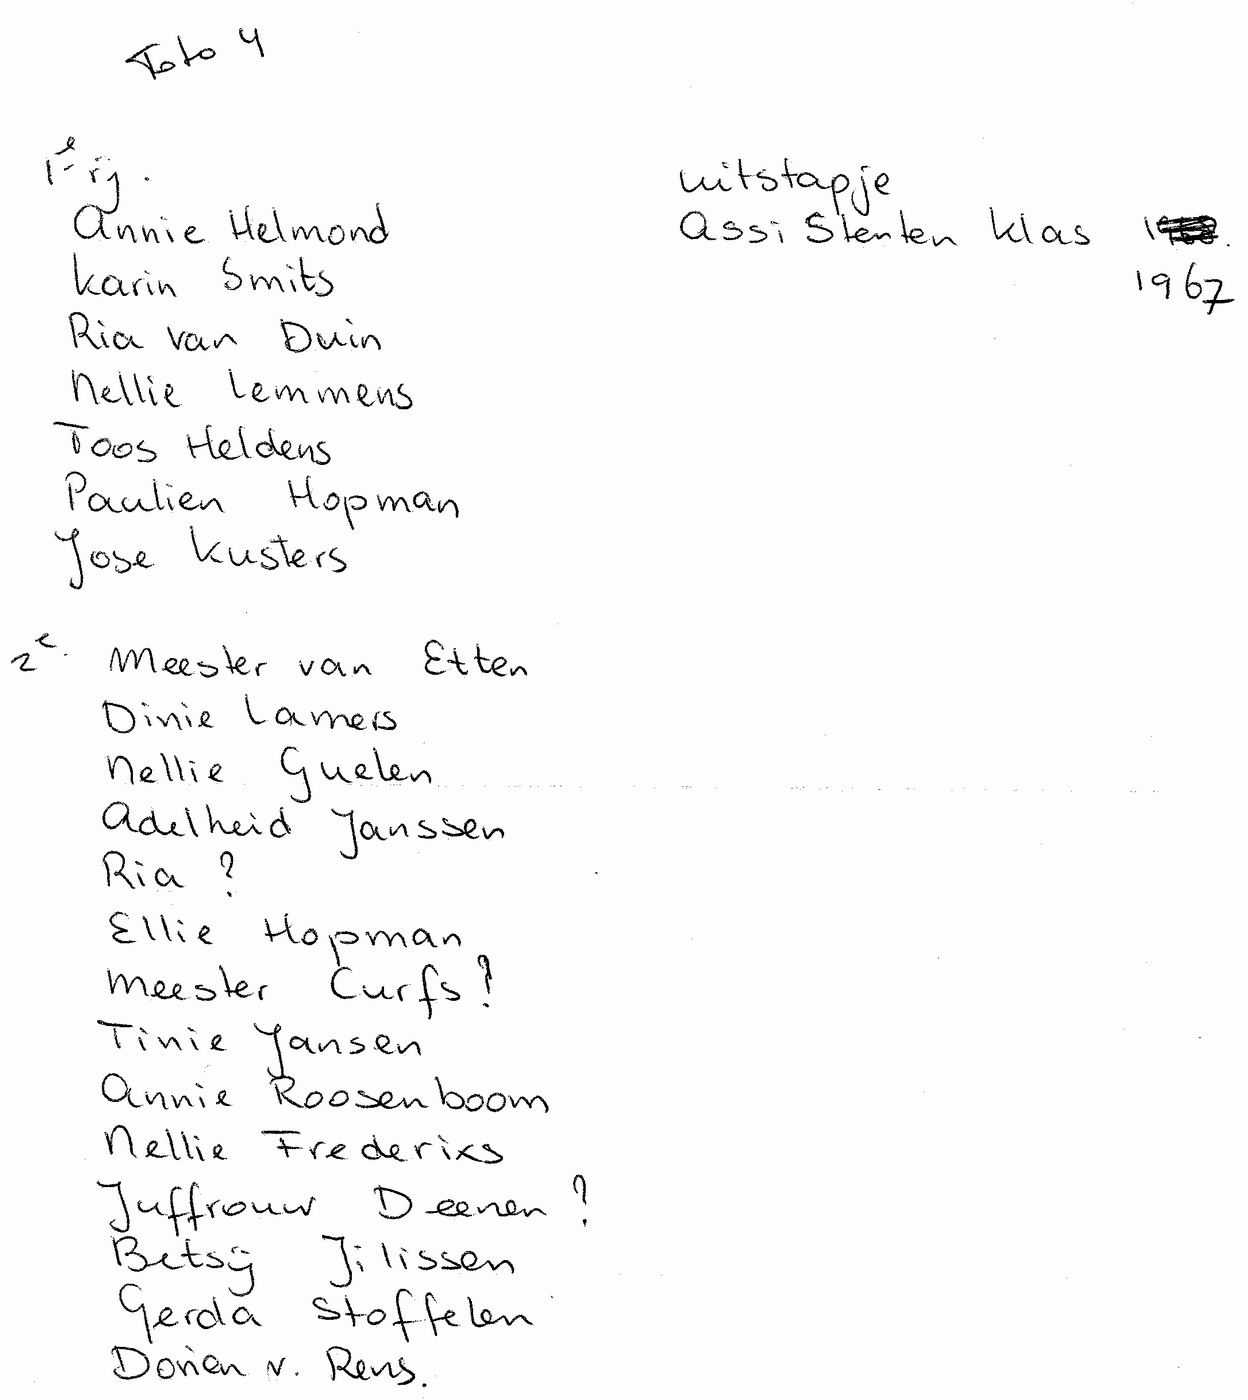 Foto 4
1e rij.
Annie Helmond
Karin Smits
Ria van Duin
Nellie Lemmens
Toos Heldens
Paulien Hopman
Jose Kusters
uitstapje
Assistenten klas
1967
2e. Meester van Etten
Dinie Lamers
Nellie Guelen
Adelheid Janssen
Ria ?
Ellie Hopman
Meester Curfs?
Tinie Jansen
Annie Roosenboom
Nellie Frederixs
Juffrouw Deenen ?
Betsÿ Jilissen
Gerda Stoffelen
Dorien v. Rens.